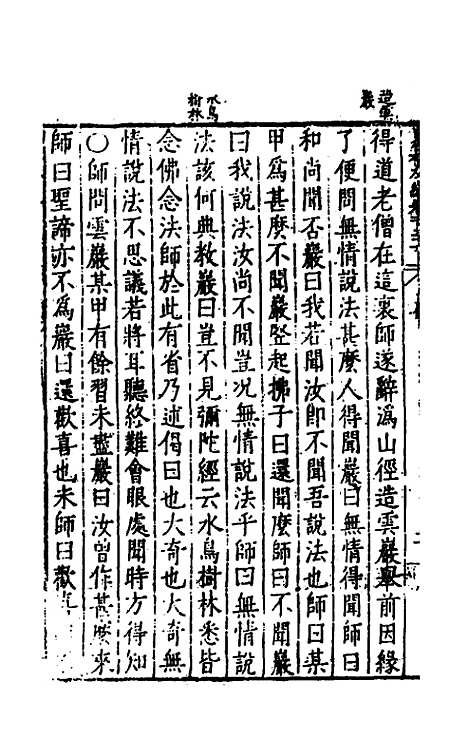 造雲
巖
水鳥
樹林
得道老僧在這裏師遂辭潙山徑造雲巖舉前因緣
了便問無情說法甚麼人得聞巖曰無情得聞師曰
和尚聞否巖曰我若聞汝即不聞吾說法也師曰某
甲為甚麼不聞巖竪起拂子曰還聞麼師曰不聞巖
曰我說法汝尚不聞豈況無情說法乎師曰無情說
法該何典教巖曰豈不見彌陀經云水鳥樹林悉皆
念佛念法師於此有省乃述偈曰也大奇也大奇無
情說法不思議若將耳聽終難會眼處聞時方得知
○師問雲巖某甲有餘習未盡巖曰汝曾作甚麼來
師曰聖諦亦不為巖曰還歡喜也未師曰歡